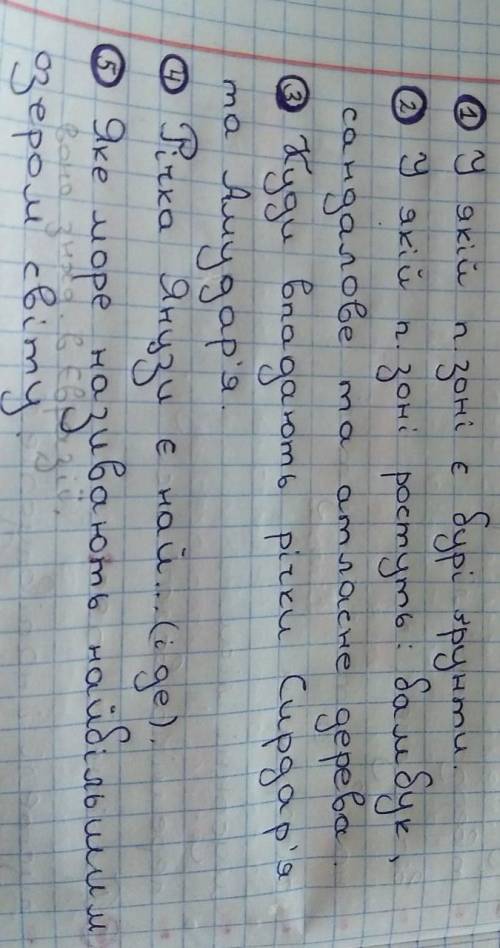 ① У якій п.зоні є бурі ґрунти.
② У якій п.зоні ростуть: бамбук,
сандалове та атласне дерева.
③ Куди впадають річки Сирдар'я
та Амудар'я.
④ Річка Янузи є най... (і де).
⑤ Яке море називають найбільшим
озером світу.